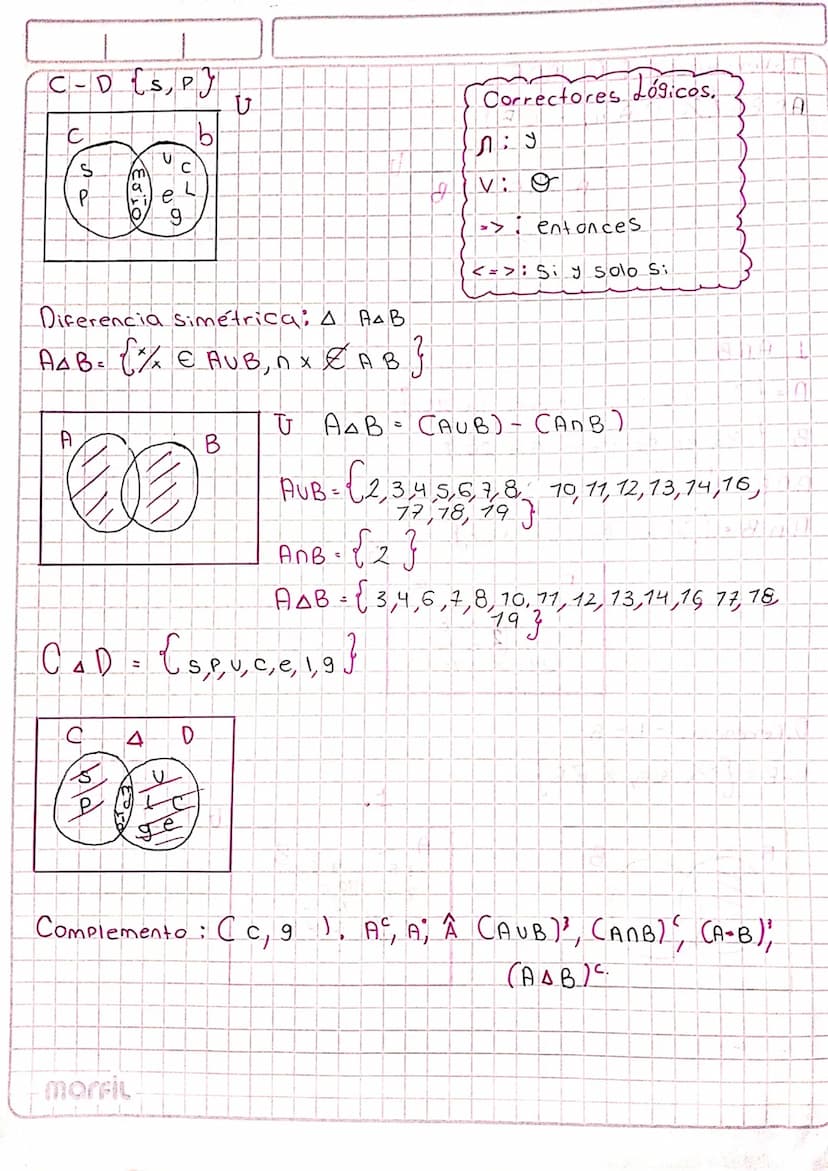 C - D {s, p}
U
C b
s
p
m
a
r
i
o
u c
e L
g
Correctores Lógicos.
∩ : y
v : O
=> : entonces
<=> : Si y solo si
Diferencia simétrica: Δ AΔB
AΔB = {x/x ∈ A∪B, ∩ x ∉ A B}
A B
U AΔB = (A∪B) - (A∩B)
A∪B = {2,3,4,5,6,7,8, 10,11,12,13,14,16,
17,18, 19}
A∩B = {2}
AΔB = {3,4,6,7,8,10,11,12,13,14,16 17,18,
19}
C Δ D = {s,p,u,c,e,l,g}
C Δ D
s
p
u
l c
g e
Complemento : ( c, g ). Aᶜ, A', Â (A∪B)', (A∩B)ᶜ, (A-B)',
(A Δ B)ᶜ.
morfil